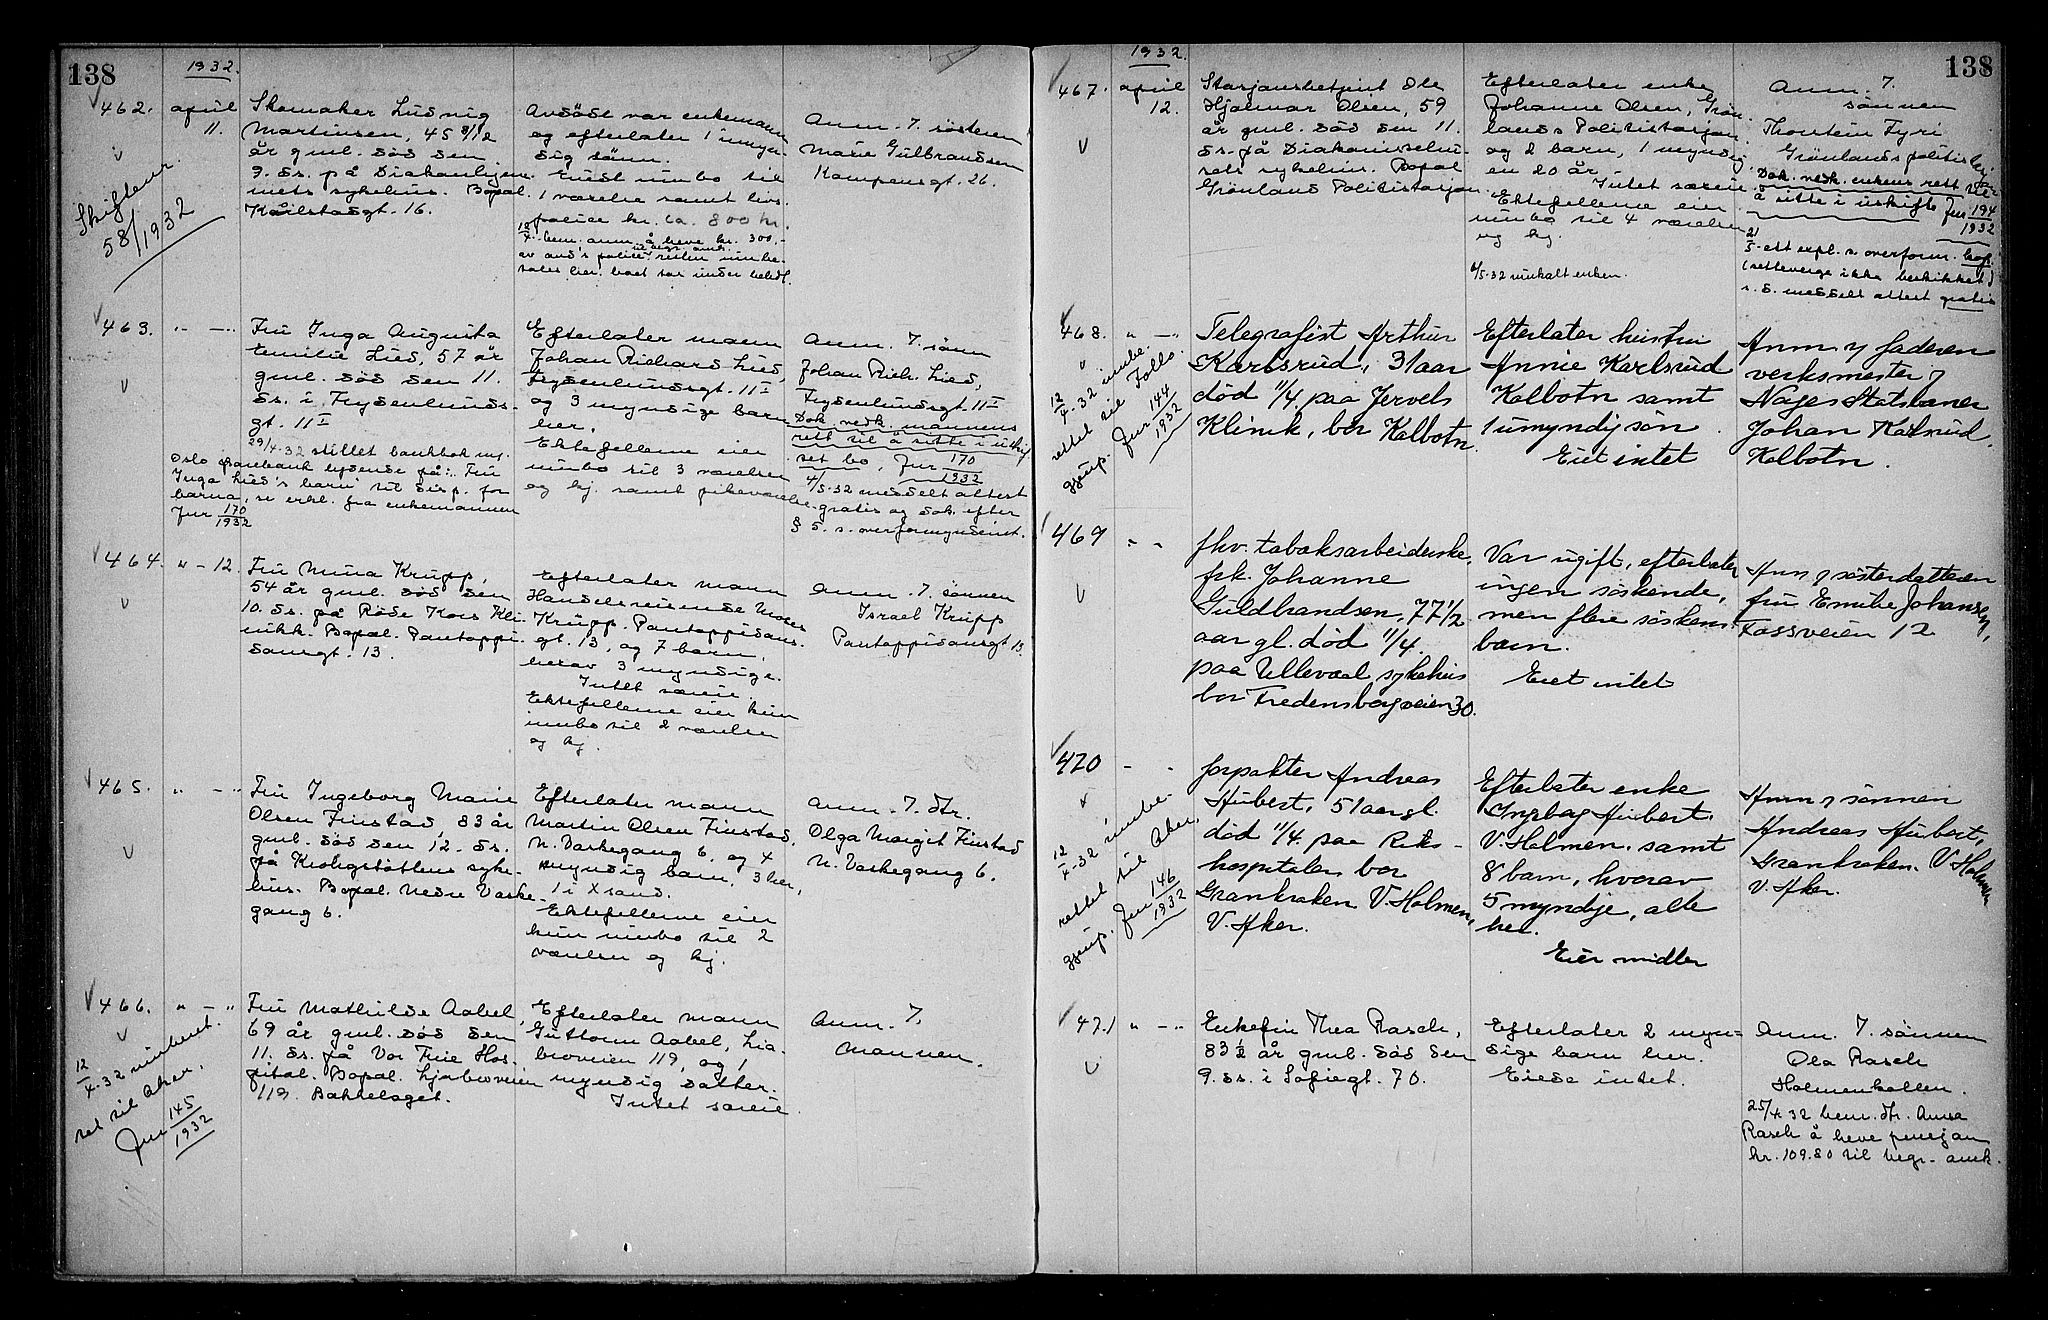 138
1932.
462.
april
11.
Skomaker Ludvig
Martinsen, 45 8/12
år gml. død den
9. ds. på Diakonhjem-
mets sykehus. Bopæl.
Kårlstadgt. 16.
Avdöde var enkemann
og efterlater 1 umyn-
dig sönn.
Eiet innbo til
1 værelse samt livs-
police kr. ca. 800 kr.
12/4. bem. anm. å heve kr. 300,-
av avd's police til begr. omk.
resten innbe-
tales her, boet tas under behdl.
Anm. 7. søsteren
Marie Gulbrandsen
Kampensgt. 26.
Skiftevæ
58/1932
463.
" — "
Fru Inga Augusta
Emilie Lied, 57 år
gml. död den 11.
ds. i Frydenlunds-
gt. 11 I
29/4-32 stillet bankbok nr.
Oslo Sparebank lydende på: "Fru
Inga Lied's barn" til disp. for
barna, se erkl. fra enkemannen
Jnr 170/1932
Efterlater mann
Johan Richard Lied,
Frydenlundsgt. 11 I
og 3 myndige barn
her.
Ektefellene eier
innbo til 3 værelser
og kj. samt pikeværelse
Anm. 7. sönn
Johan Rich. Lied,
Frydenlundsgt. 11 I
Dok. vedk. mannens
rett til å sitte i uskif-
tet bo, Jnr 170/1932
4/5-32 meddelt attest
gratis og dok. efter
§ 5. s. overformynderiet.
464.
" - 12.
Fru Mina Krupp,
54 år gml. död den
10. ds. på Röde Kors Kli-
nikk. Bopæl. Pontoppi-
dansgt. 13.
Efterlater mann
Handelsreisende Moses
Krupp. Pontoppidans-
gt. 13, og 7 barn,
herav 3 myndige.
Intet særeie.
Ektefellene eier kun
innbo til 2 værelser
og kj.
Anm. 7. sönnen
Israel Krupp
Pontoppidansgt 13.
465.
" — "
Fru Ingeborg Marie
Olsen Finstad, 83 år
gml. død den 12. ds.
på Krohgstöttens syke-
hus. Bopæl. Nedre Vaske-
gang 6.
Efterlater mann
Martin Olsen Finstad,
N. Vaskegang 6, og 4
myndig barn, 3 her,
1 i X sand.
Ektefellene eier
kun innbo til 2
værelser og kj.
Anm. 7. dtr.
Olga Margit Finstad
N. Vaskegang 6.
466.
" — "
Fru Mathilde Aabel,
69 år gml. död den
11. ds. på Vor Frue Hos-
pital. Bopæl. Ljabroveien
119. Bækkelaget.
Efterlater mann
Guttorm Aabel, Lja-
broveien 119, og 1
myndig datter.
Intet særeie.
Anm. 7.
mannen.
12/4-32 innberet-
tet til Aker,
Jnr 145/1932
138
1932.
467.
april
12.
Stasjonsbetjent Ole
Hjalmar Olsen, 59
år gml. död den 11.
ds. på Diakonissehu-
sets sykehus. Bopæl
Grönland Politistasjon.
Efterlater enke
Johanne Olsen, Grön-
lands Politistasjon
og 2 barn, 1 myndig,
en 20 år.
Intet særeie.
Ektefellene eier
innbo til 4 værelser
og kj.
4/5-32 innkalt enken.
Anm. 7.
sönnen
Thorstein Fyri
Grönlands politist.
Dok. vedk. enkens rett til
å sitte i uskifte Jnr 194/1932
2/5- ett expl. s. overform.
(setteverge ikke beskikket)
s. d. meddelt attest gratis
468.
" — "
Telegrafist Arthur
Karlsrud, 31 aar
død 11/4 paa Jervels
Klinik, bor Kolbotn.
Efterlater hustru
Annie Karlsrud
Kolbotn samt
1 umyndig søn
Eiet intet
Anm 7 faderen
verksmester 7
Norges Statsbaner
Johan Karlsrud,
Kolbotn.
12/4-32 innbe-
rettet til Follo.
gjenp. Jnr 144/1932
469
" "
fhv. tobaksarbeiderske,
frk. Johanne
Guldbrandsen, 77 1/2
aar gl. død 11/4.
paa Ullevaal sykehus
bor Fredensborgveien 30.
Var ugift, efterlater
ingen søskende,
men flere søsken-
barn.
Eiet intet
Anm 7 søsterdatteren
fru Emilie Johansen,
Fossveien 12
470
" "
forpakter Andreas
Hubert, 51 aar gl.
død 11/4 paa Riks-
hospitalet, bor
Grankroken V. Holmen,
V. Aker.
Efterlater enke
Ingeborg Hubert.
V. Holmen. samt
8 barn, hvorav
5 myndige, alle
her.
Eier midler
Anm 7 sønnen
Andreas Hubert,
Grankroken. V. Holmen
V. Aker.
12/4-32 innbe-
rettet til Aker,
gjenp. Jnr 146/1932
471
" — "
Enkefru Thea Rasch,
83 1/2 år gml. död den
9. ds. i Sofiegt. 70.
Efterlater 2 myn-
dige barn her.
Eiede intet.
Anm. 7. sönnen
Ola Rasch
Holmenkollen.
25/4 32 bem. dtr. Anna
Rasch å heve pensjon
kr. 109.80 til begr. omk.